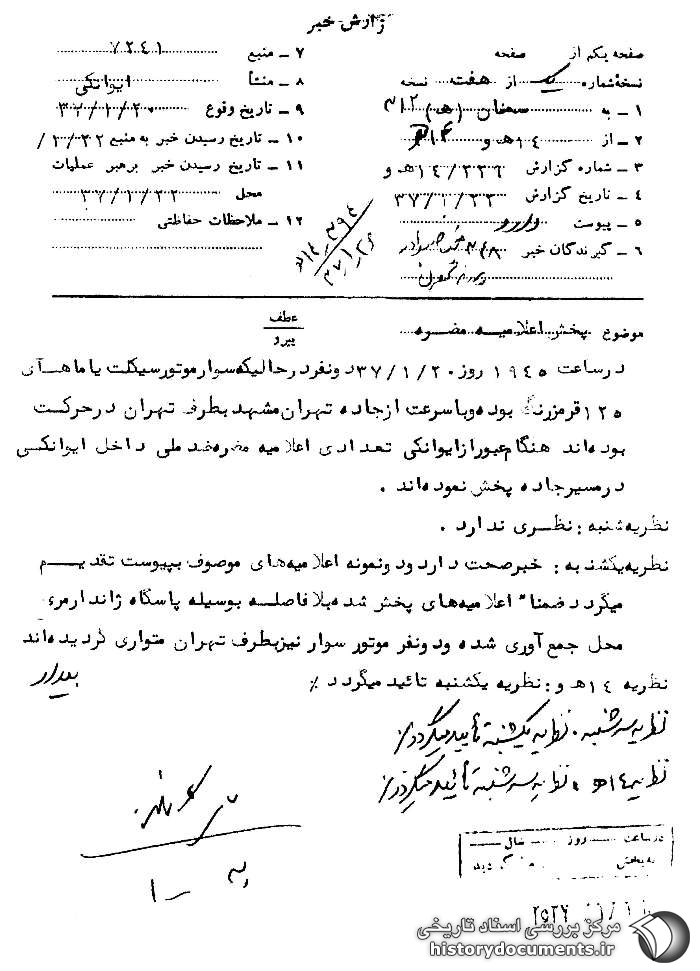 گزارش خبر
صفحه یکم از صفحه
نسخه شماره یک از هفته نسخه
۱ ـ به سمنان (ه‍) ۳۱۲
۲ ـ از ۱٤ه‍ و
۳ ـ شماره گزارش ۱٤/۳۳٦ه‍ و
٤ ـ تاریخ گزارش ۳۷/۱/۲۲
۵ ـ پیوست دارد
٦ ـ گیرندگان خبر
۷ ـ منبع ۷۲٤۱
۸ ـ منشأ ایوانکی
۹ ـ تاریخ وقوع ۳۷/۱/۲۰
۱۰ ـ تاریخ رسیدن خبر به منبع
۱۱ ـ تاریخ رسیدن خبر برهبر عملیات
محل ۳۷/۱/۲۲
۱۲ ـ ملاحظات حفاظتی
۱٤ـ۳۹٤
۳۷ـ۱ـ۲٦
موضوع پخش اعلامیه مضره
عطف
پیرو
درساعت ۱۹٤۵ روز ۳۷/۱/۲۰ دونفر درحالیکه سوار موتورسیکلت یاماهای
۱۲۵ قرمزرنگ بوده وباسرعت ازجاده تهران مشهد بطرف تهران درحرکت
بوده‌اند هنگام عبورازایوانکی تعدادی اعلامیه مضره ضد ملی داخل ایوانکی
درمسیرجاده پخش نموده‌اند .
نظریه شنبه : نظری ندارد .
نظریه یکشنبه : خبرصحت دارد دونمونه اعلامیه‌های موصوف بپیوست تقدیم
میگردد ضمناً اعلامیه‌های پخش شده بلافاصله بوسیله پاسگاه ژاندارمری
محل جمع‌آوری شده ودونفر موتور سوار نیزبطرف تهران متواری گردیده‌اند
نظریه ۱٤ه‍ و : نظریه یکشنبه تائید میگردد ٪ بیدار
نظریه سه‌شنبه . نظریه یکشنبه تأیید میگردد ٪
نظریه ۱٤ه‍ . نظریه سه‌شنبه تأئید میگردد ٪
درساعت روز سال
به بخش گردید
مرکز بررسی اسناد تاریخی
historydocuments.ir